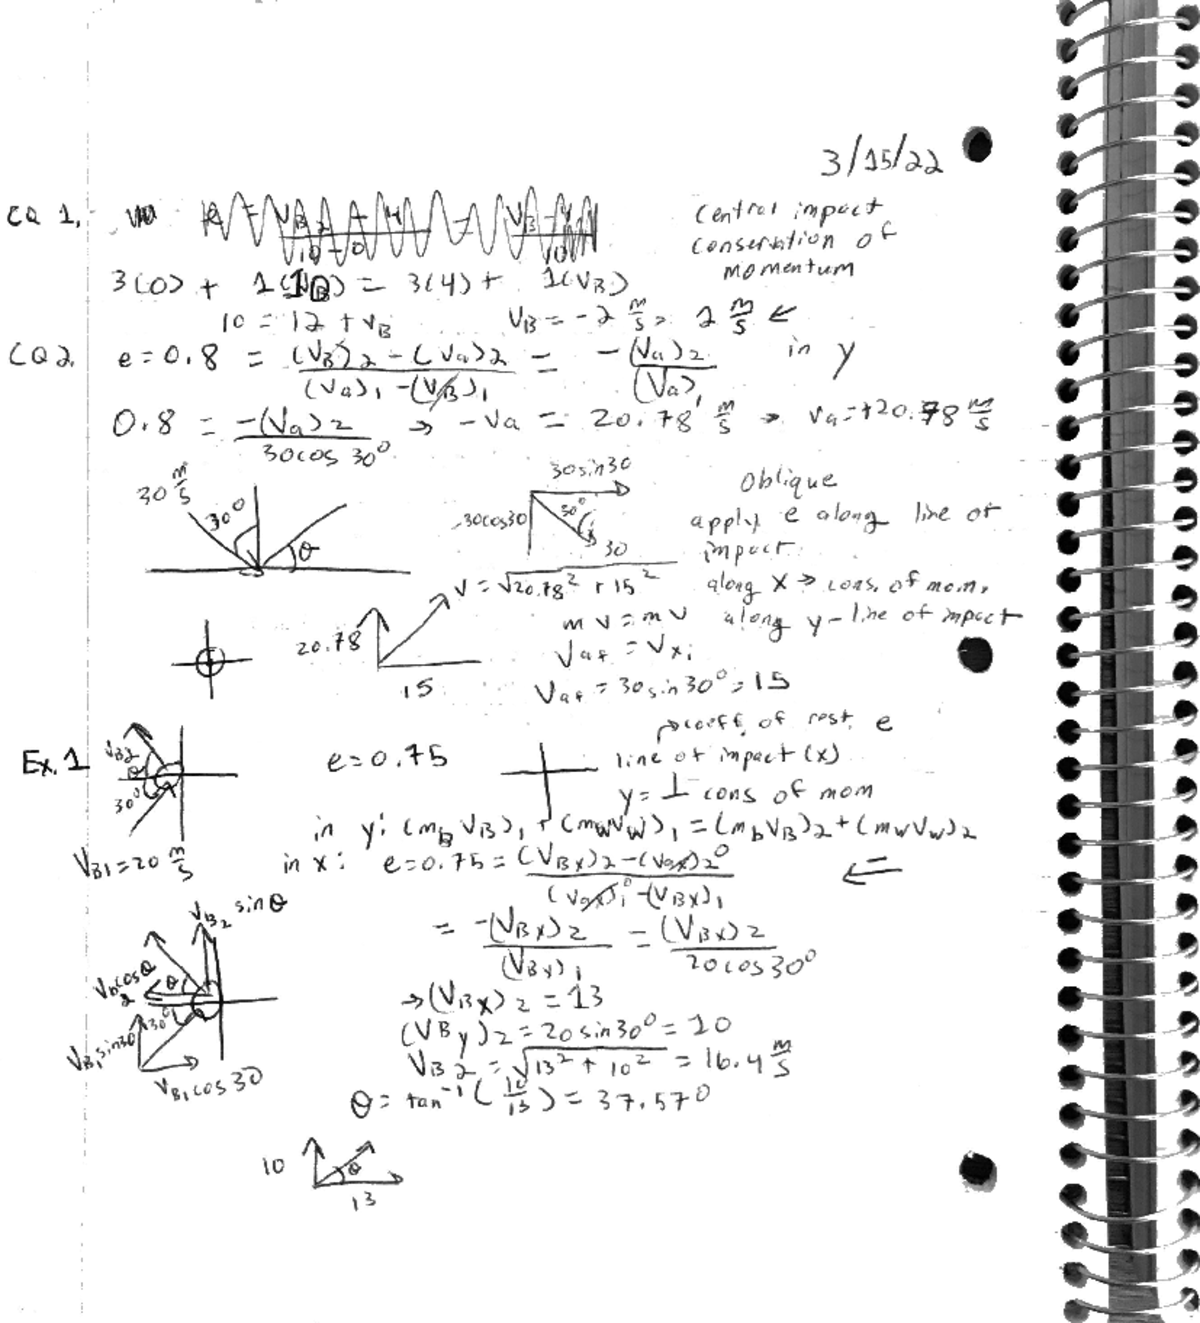 3/15/22
CQ 1.
Central impact
conservation of
momentum
3(0) + 1(10) = 3(4) + 1(VB)
10 = 12 + VB VB = -2 m/s, 2 m/s ←
CQ 2. e = 0.8 = (VB)2 - (Va)2 / (Va)1 - (VB)1 = -(Va)2 / (Va)1 in y
0.8 = -(Va)2 / 30cos 30° → -Va = 20.78 m/s → Va = +20.78 m/s
30 m/s
30°
θ
30sin30
30cos30
30°
30
Oblique
apply e along line of
impact
along x → cons. of mom.
along y - line of impact
V = √20.78² + 15²
20.78
15
m v = m v
Vaf = Vxi
Vaf = 30sin30° = 15
Ex. 1
VB2
θ
30°
VB1 = 20 m/s
e = 0.75
→ coeff. of rest. e
line of impact (x)
y = ⊥ cons of mom
in y: (mbVB)1 + (mwVw)1 = (mbVB)2 + (mwVw)2
in x: e = 0.75 = (VBx)2 - (Vax)2 0 / (Vax)1 0 - (VBx)1 ⇐
= -(VBx)2 / (VBx)1 = (VBx)2 / 20cos30°
→ (VBx)2 = 13
(VBy)2 = 20sin30° = 10
VB2 = √13² + 10² = 16.4 m/s
θ = tan⁻¹(10/13) = 37.57°
VB2 sinθ
VB2 cosθ
θ
30°
VB1 sin30
VB1 cos30
10
θ
13